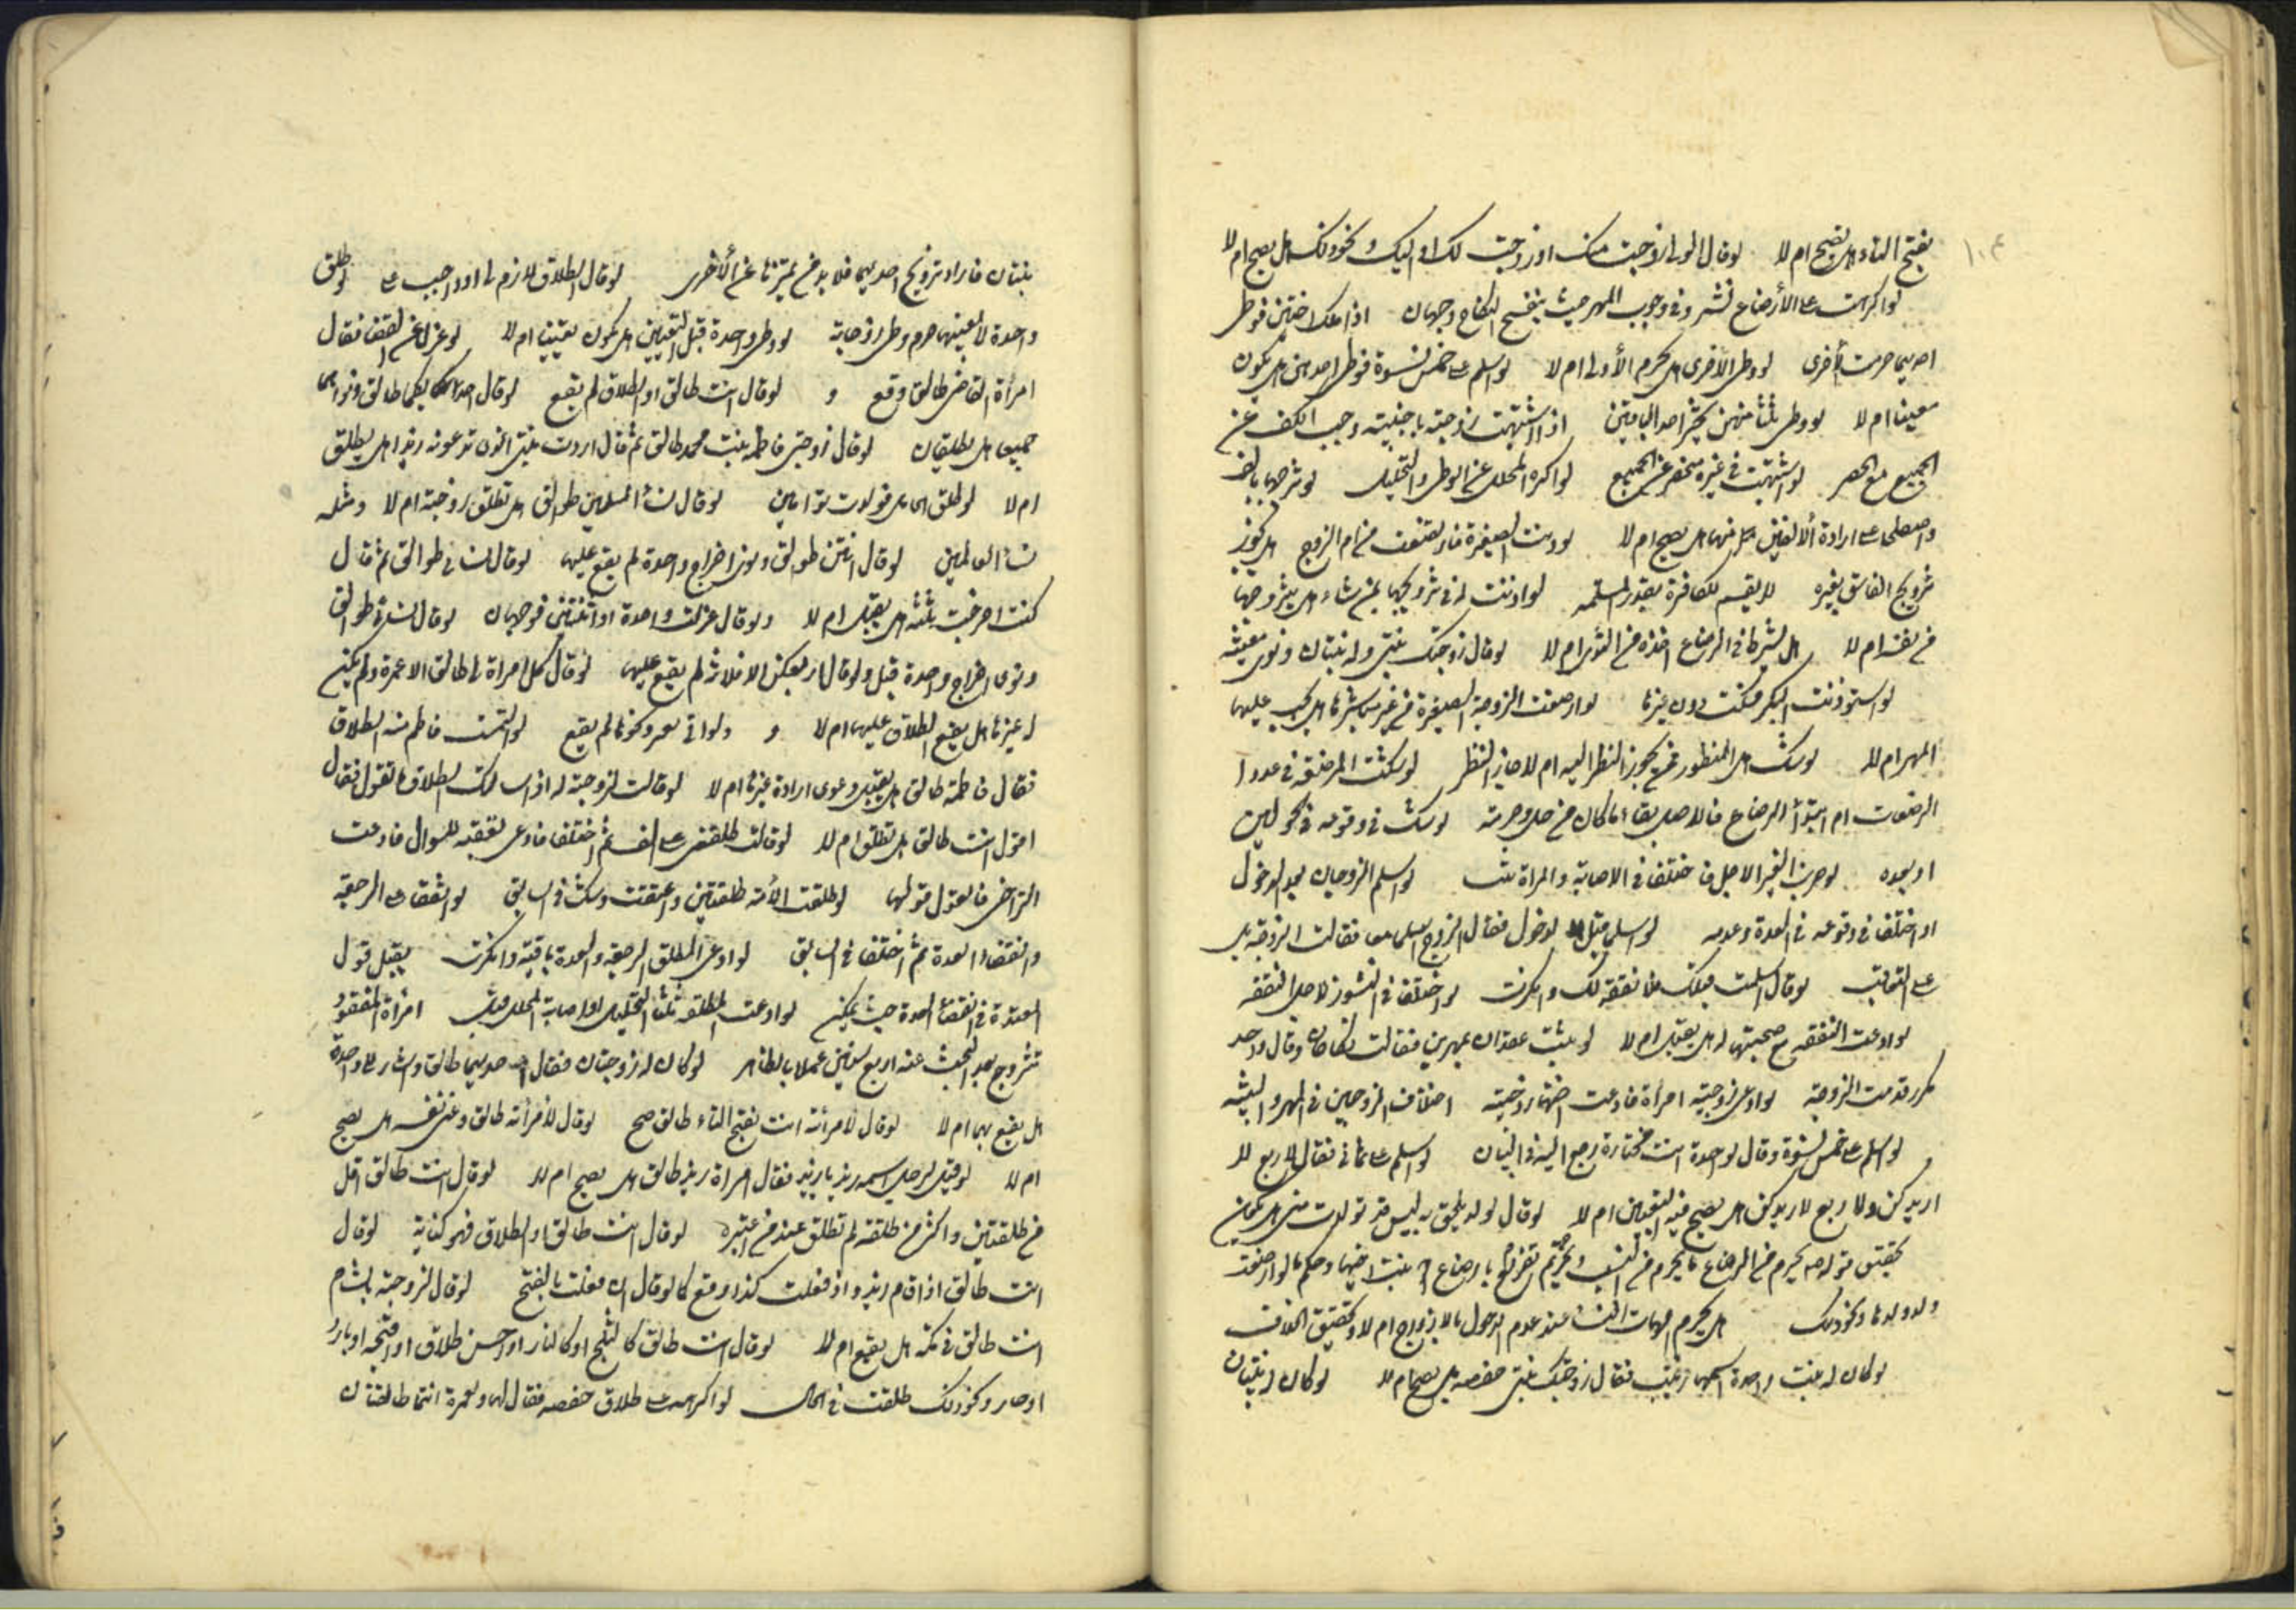 ١٠٤
بفتح التاء هل يصح ام لا لو قال الولي زوجت منك او زوجت لك او اليك و نحو ذلك هل يصح ام لا
لو اكرهت على الأرضاع نشر وفي وجوب المهر حيث ينفسخ النكاح وجهان اذا ملك اختين فوطئ
احديهما حرمت الأخرى لو وطئ الاخرى هل تحرم الأولى ام لا لو اسلم على خمس نسوة فوطئ احديهن هل يكون
معينا ام لا لو وطئ ثلثا منهن تخير احد الباقيتين اذا اشتبهت زوجته باجنبية وجب الكف عن
الجميع مع الحصر لو اشتبهت في غير منحصر عن الجميع لو اكره المحلل على الوطئ والتحليل لو شرحها
واصطلحا على ارادة ألالفين بكل منهما هل يصح ام لا لو دنت الصغيرة فارتضعت من ام الزوج هل يجوز
تزويج الفاسق بغيره لا يقسم للكافرة بقدر المسلمه لو اذنت له في تزويجها بمن شاء هل يتزوجها
من نفسه ام لا هل يشترط في الرضاع اخذه من الثدي ام لا لو قال زوجتك بنتي وله بنتان ونوى معينة
لو استوذنت البكر فسكتت دون غيرها لو ارضعت الزوجة الصغيرة من غير مباشرتها هل يجب عليها
المهر ام لا لو شك هل المنظور ممن يجوز النظر اليه ام لا جاز النظر لو شكت المرضعه في عدد
الرضعات ام ابتدأ الرضاع فالاصل بقاء ما كان من حل وحرمة لو شك في وقوعه في الحولين
او بعده لو ضرب الاجل فاختلفا في الاصابة والمراة ثيب لو اسلم الزوجان بعد الدخول
او اختلف في وقوعه في العدة وعدمه لو اسلما قبل الدخول فقال الزوج اسلمنا معا فقالت الزوجة بل
على التعاقب لو قال اسلمت قبلك فلا نفقة لك وانكرت لو اختلفا في النشوز فالاصل النفقه
لو ادعت النفقه مع صحبتها له هل يقبل ام لا لو ثبت عقدان بمهرين فقالت نكاحان وقال واحد
مكرر قدمت الزوجة لو ادعى زوجية امراة فادعت اختها زوجيته اختلاف الزوجين في المهر والبينه
لو اسلم على خمس نسوة وقال لواحدة انت مختارة رجع اليه في البيان لو اسلم على ثماني فقال لاربع لا
اريدكن ولاربع لاريدكن هل يصح فيه التعيين ام لا لو قال لولد يلحق به ليس قد تولدت مني هل يمكن
تحقيق قوله يحرم من الرضاع ما يحرم من النسب بنت اخيها وحكم ما لو ارضعت
ولد ولدها ونحو ذلك هل يحرم امهات النساء عند عدم الدخول بالازواج ام لا وتحقيق الخلاف
لو كان له بنت واحدة اسمها زينب فقال زوجتك بنتي حفصه هل يصح ام لا لو كان له بنتان
بنتان فاراد تزويج احديهما فلا بد من تميزها عن الأخرى لو قال الطلاق لازم لي او واجب علي لو طلق
واحدة لا بعينها حرم وطئ زوجاته لو وطئ واحدة قبل التعيين هل يكون تعيينا ام لا لو عزل عن القضا فقال
امرأة القاضي طالق وقع و لو قال انت طالق او الطلاق لم يقع لو قال احدا كما طالق ونواهما
جميعا هل يطلقان لو قال زوجتي فاطمه بنت محمد طالق ثم قال اردت بنتي الذي تدعونه زيدا هل يطلق
ام لا لو طلق الحامل فولدت توامين لو قال نساء المسلمين طوالق هل تطلق زوجته ام لا ومثله
نساء العالمين لو قال انتن طوالق ونوى اخراج واحدة لم يقع عليها لو قال نسائي طوالق ثم قال
كنت اخرجت ثلثة هل يقبل ام لا ولو قال عزلت واحدة او اثنتين فوجهان لو قال نسائي طوالق
ونوى اخراج واحدة قبل ولو قال اربعكن الا فلانة لم يقع عليها لو قال كل امراة لي طالق الا عمرة ولم يكن
له غيرها هل يقع الطلاق عليها ام لا و ولو اتى بغير ونحوها لم يقع لو التمست فاطمه منه الطلاق
فقال فاطمة طالق هل يقبل دعوى ارادة غيرها ام لا لو قالت لزوجته له اذا سالك الطلاق ما تقول فقال
اقول انت طالق هل تطلق ام لا لو قالت طلقني على الف ثم اختلفا فادعى تعقبه للسوال فادعت
التراخي فالقول قولها لو طلقت الأمة طلقتين واعتقت وشك في السابق لو اتفقا على الرجعة
وانقضاء العدة ثم اختلفا في السابق لو ادعى المطلق الرجعة والعدة باقية وانكرت يقبل قول
المعتدة في انقضاء العدة حيث يمكن لو ادعت المطلقه ثلثا التحليل واصابة المحلل قبل امرأة المفقود
تتزوج بعد البحث عنه اربع سنين عملا بالظاهر لو كان له زوجتان فقال احديهما طالق واشار الى واحدة
هل يقع بها ام لا لو قال لامرأته انت بفتح التاء طالق صح لو قال لأمرأته طالق وعنى نفسه هل يصح
ام لا لو قيل لرجل اسمه زيد يا زيد فقال امراة زيد طالق هل يصح ام لا لو قال انت طالق اقل
من طلقتين واكثر من طلقة لم تطلق عند من اعتبره لو قال انت طالق او الطلاق فهو كناية لو قال
انت طالق اذا قام زيد واذ فعلت كذا وقع كما لو قال ان فعلت بالفتح لو قال لزوجته بالشام
انت طالق في مكه هل يقع ام لا لو قال انت طالق كالثلج او كالنار او احسن طلاق او اقبحه او بارد
او حار ونحو ذلك طلقت في الحال لو اكره على طلاق حفصه فقال لها ولعمرة انتما طالقتان